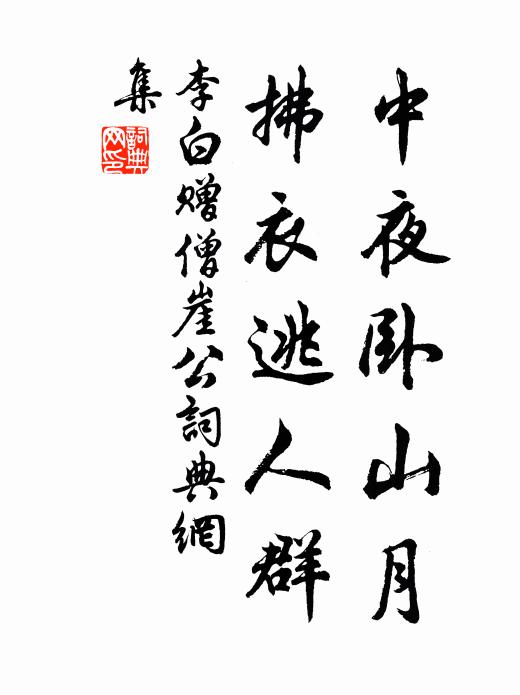 中夜卧山月
拂衣逃人群
李白赠僧崖公詞典網
集
詞典
网印